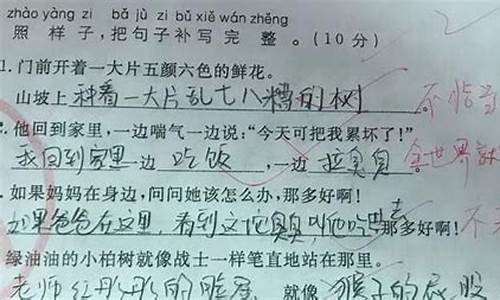 zhào yàng zi bǎ jù zi bǔ xiě wán zhěng
照 样 子，把 句 子 补 写 完 整 。(10 分)
1. 门前开着一大片五颜六色的鲜花。
山坡上 种着一大片乱七八糟的树 。 不恰当
2. 他回到家里，一边喘气一边说：“今天可把我累坏了！”
我回到家里一边 吃饭 ，一边 拉臭臭 。 全世界
如果妈妈在身边，问问她该怎么办，那多好啊！
如果爸爸在这里，看到这坨臭臭叫他吃 去 那多好啊！
绿油油的小柏树就像战士一样笔直地站在那里。
老师红彤彤的脸蛋 就像 猴子的屁股